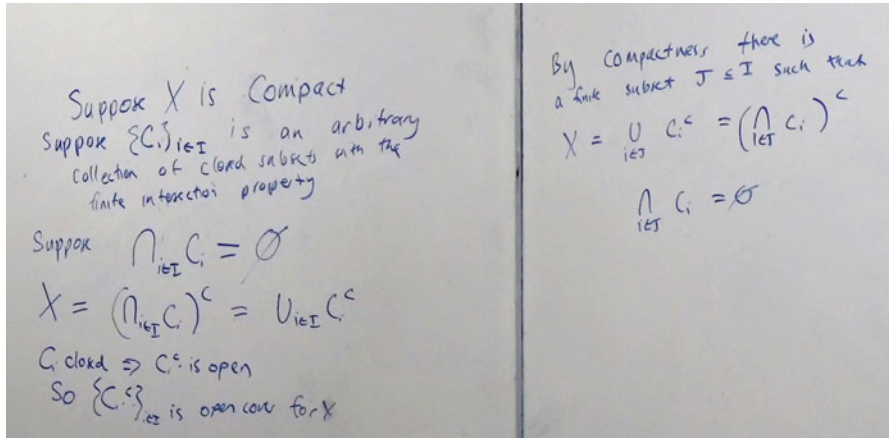 Suppose X is Compact
Suppose {Cᵢ}ᵢ∈I is an arbitrary
collection of closed subsets with the
finite intersection property
Suppose ⋂ᵢ∈I Cᵢ = ∅
X = (⋂ᵢ∈I Cᵢ)ᶜ = ⋃ᵢ∈I Cᵢᶜ
Cᵢ closed ⇒ Cᵢᶜ is open
So {Cᵢᶜ}ᵢ∈I is open cover for X
By compactness there is
a finite subset J ⊆ I such that
X = ⋃ᵢ∈J Cᵢᶜ = (⋂ᵢ∈J Cᵢ)ᶜ
⋂ᵢ∈J Cᵢ = ∅